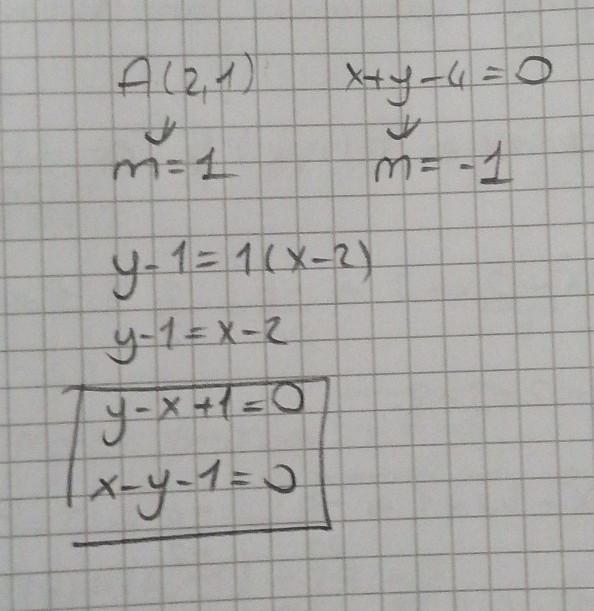 A(2,1) x+y-4=0
↓ ↓
m=1 m=-1
y-1=1(x-2)
y-1=x-2
y-x+1=0
x-y-1=0